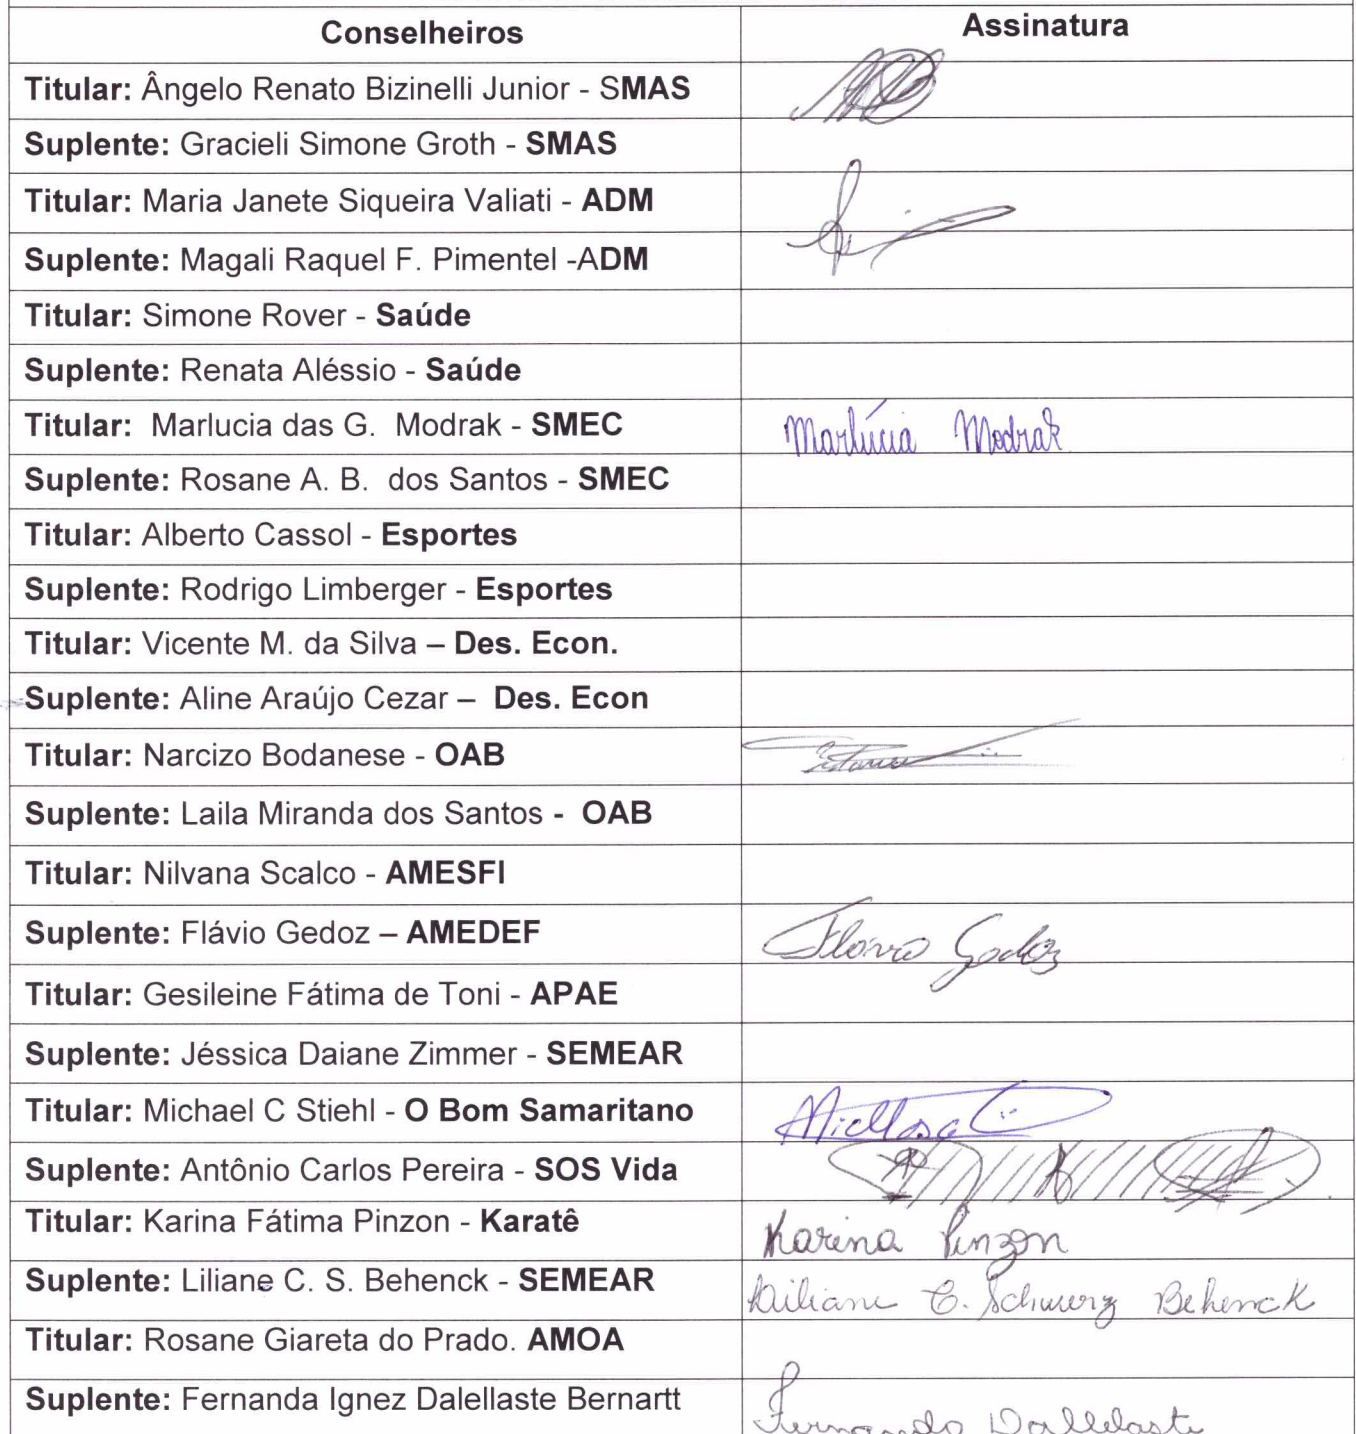 Conselheiros Assinatura
Titular: Ângelo Renato Bizinelli Junior - SMAS
Suplente: Gracieli Simone Groth - SMAS
Titular: Maria Janete Siqueira Valiati - ADM
Suplente: Magali Raquel F. Pimentel -ADM
Titular: Simone Rover - Saúde
Suplente: Renata Aléssio - Saúde
Titular: Marlucia das G. Modrak - SMEC Marlúcia Modrak
Suplente: Rosane A. B. dos Santos - SMEC
Titular: Alberto Cassol - Esportes
Suplente: Rodrigo Limberger - Esportes
Titular: Vicente M. da Silva – Des. Econ.
Suplente: Aline Araújo Cezar – Des. Econ
Titular: Narcizo Bodanese - OAB
Suplente: Laila Miranda dos Santos - OAB
Titular: Nilvana Scalco - AMESFI
Suplente: Flávio Gedoz – AMEDEF Flávio Gedoz
Titular: Gesileine Fátima de Toni - APAE
Suplente: Jéssica Daiane Zimmer - SEMEAR
Titular: Michael C Stiehl - O Bom Samaritano
Suplente: Antônio Carlos Pereira - SOS Vida
Titular: Karina Fátima Pinzon - Karatê Karina Pinzon
Suplente: Liliane C. S. Behenck - SEMEAR Liliane C. Schwerz Behenck
Titular: Rosane Giareta do Prado. AMOA
Suplente: Fernanda Ignez Dalellaste Bernartt Fernanda Dallelaste